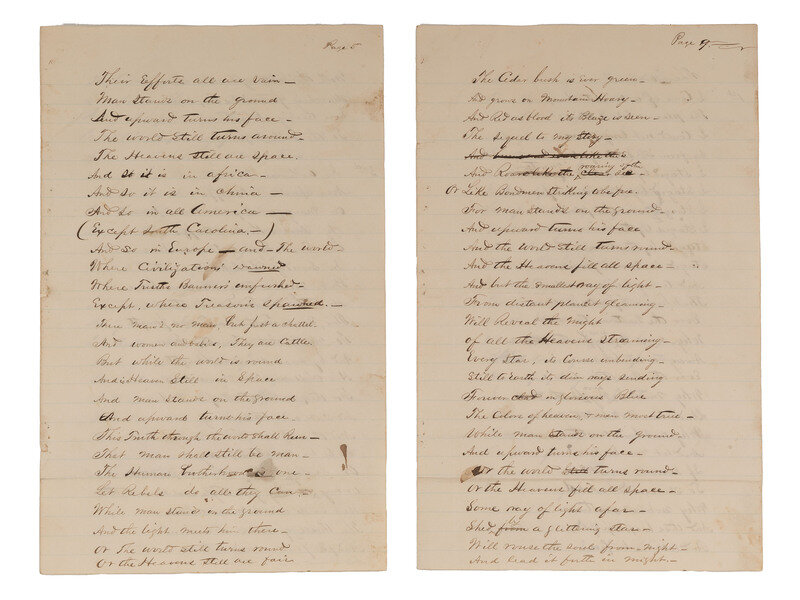 Page 5
Their Efforts all are vain—
Man Stands on the ground
And upward turns his face—
The world Still turns around—
The Heavens Still are Space.
And So it is in africa—
And So it is in China—
And So in all America—
(Except South Carolina.—)
And So in Europe—and—The world—
Where Civilization's
Where Truths Banners unfurled—
Except, where Treason's Spawned.—
There man's no man, but just a chattel.
And women and babies, They are Cattle
But while the world is round
And is Heaven Still in Space
And man Stands on the ground
And upward turns his face—
This Truth through the world Shall Run—
That man Shall Still be man—
The Human brotherhood is one—
Let Rebels do all they Can,—
While man Stands on the ground
And the light meets him there—
Or The world Still turns round
Or the Heavens Still are fair
Page 9
The Cedar bush is ever green—
And grows on Mountain Hoary—
And Red as blood its Blaze is Seen—
The Sequel to my Story—
And like the
roaring
And Roar like the Sea—
Or Like Bondmen Striking to be free.
For man Stands on the ground—
And upward turns his face
And the world Still turns round—
And the Heavens fill all Space—
And but the Smallest ray of light—
From distant planet gleaming—
Will Reveal the might
of all the Heavens Streaming—
Every Star, its Course unbending—
Still to Earth its dim rays Sending
Forever clad in glorious Blue
The Colors of heaven, & men most true—
While man Stands on the ground—
And upward turns his face—
Or the world Still turns round—
Or the Heavens fill all Space—
Some ray of light afar—
Shed from a glittering Star—
Will rouse the Souls from Night—
And Lead it forth in might.—